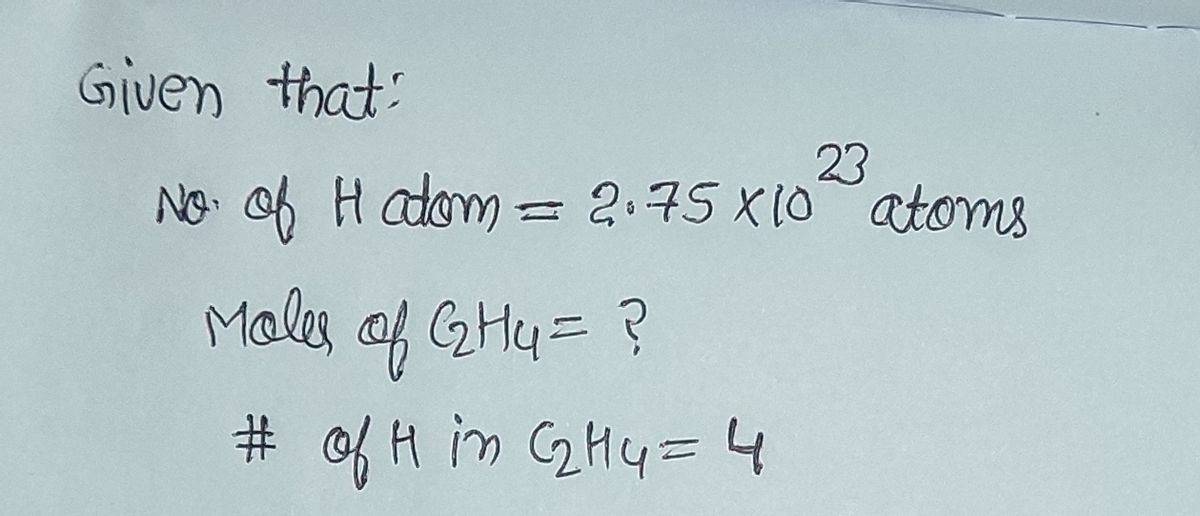 Given that:
No. of H atom = 2.75 x 10²³ atoms
Moles of C2H4 = ?
# of H in C2H4 = 4